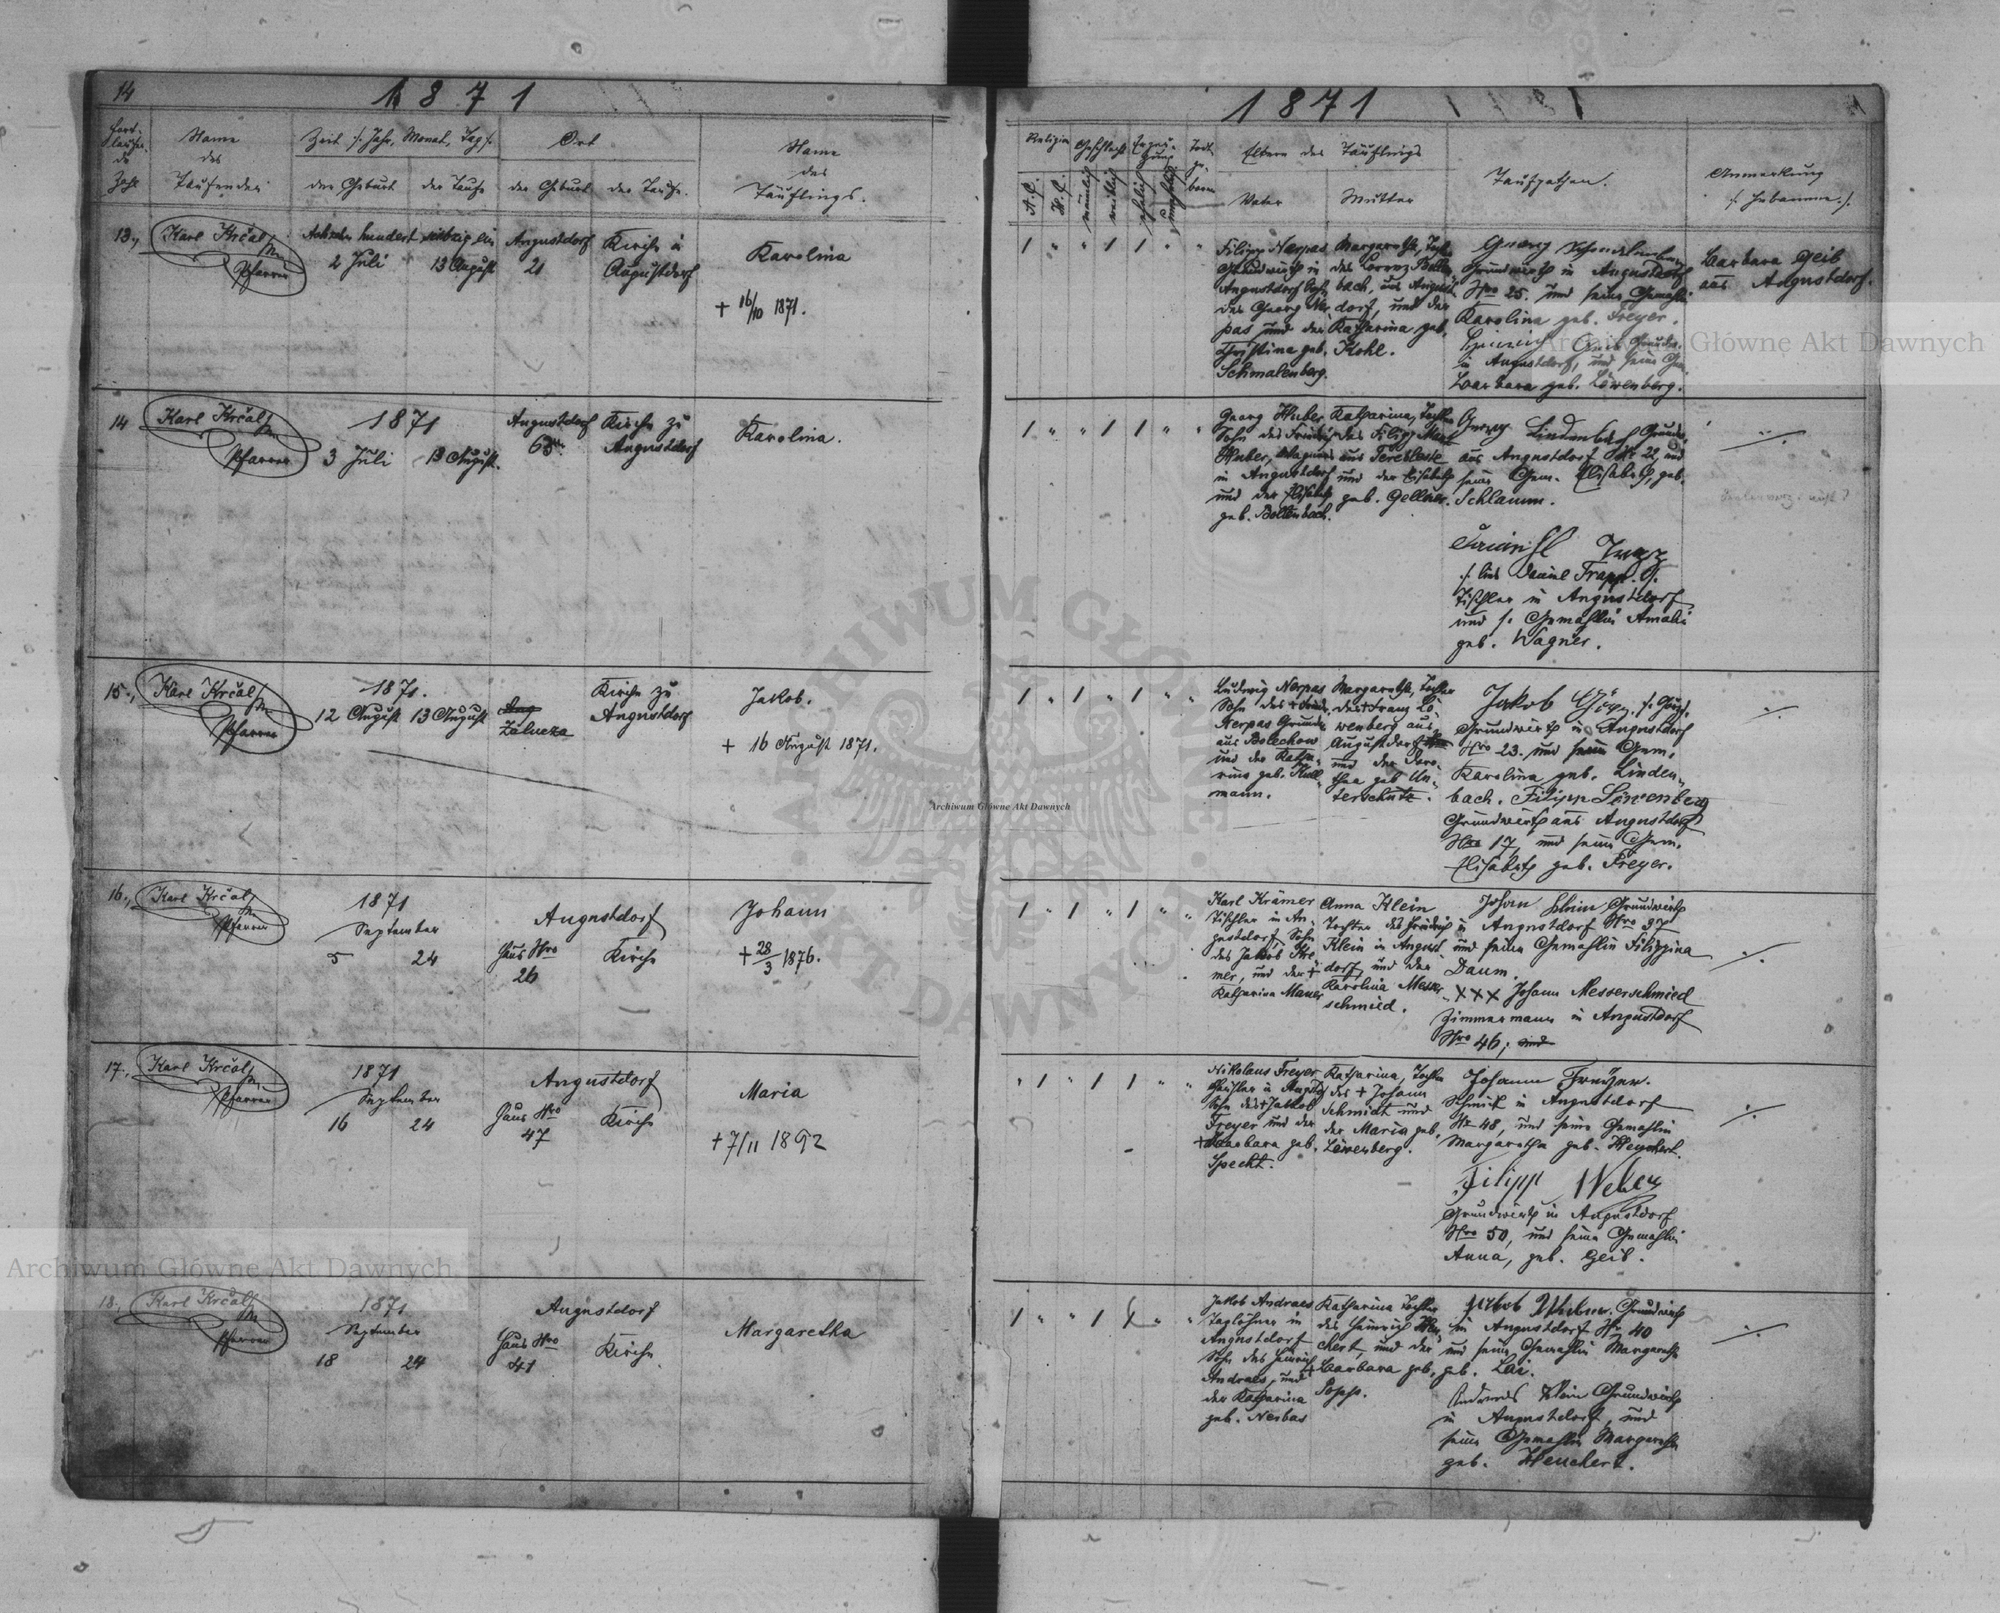 14
1871
Name
des
Taufenden
Zeit /: Jahr, Monat, Tag :/
der Geburt
der Taufe
Ort
der Geburt
der Taufe.
Name
des
Täuflings.
13.,
Karl Krčal
Pfarrer
2 Juli
13 August
Augustdorf
21
Kirche in
Augustdorf
Karolina
+ 16/10 1871.
14
Karl Krčal
Pfarrer
1871
3 Juli
13 August.
Augustdorf
Kirche zu
Augustdorf
Karolina.
15.,
Karl Krčal
Pfarrer
1871.
12 August
13 August
Zalucza
Kirche zu
Augustdorf
Jakob.
+ 16 August 1871.
16.,
Karl Krčal
Pfarrer
1871
September
5
24
Augustdorf
Haus Nro
26
Kirche
Johann
+ 28/3 1876.
17.,
Karl Krčal
Pfarrer
1871
September
16
24
Augustdorf
Haus Nro
47
Kirche
Maria
+ 7/11 1892
18.,
Karl Krčal
Pfarrer
1871
September
18
24
Augustdorf
Haus Nro
41
Kirche
Margaretha
1871
Religion
Geschlecht
A. C.
H. C.
männlich
weiblich
ehelich
unehelich
Eltern des Täuflings
Vater
Mutter
Taufpathen.
Anmerkung
/: Hebamme :/
Filipp Nerpas
Grundwirth in
Augustdorf Sohn
des Georg Ner
pas und der
Christina geb.
Schmalenberg.
Margaretha, Tochter
des Lorenz Bollen
bach, aus August
dorf, und der
Katharina geb.
Kohl.
Grundwirth in Augustdorf
Nro 25. und seine Gemahlin
Karolina geb. Freyer.
in Augustdorf, und seine Gem.
Barbara geb. Löwenberg.
Barbara Geib
aus Augustdorf.
Georg Huber
Sohn des Friedrich
Huber, Wagner
in Augustdorf
und der Elisabeth
geb. Bollenbach.
Katharina, Tochter
des Filipp
aus Terebleste
und der Elisabeth
geb. Gellner.
Georg Lindenbach
aus Augustdorf Nr 22, und
seine Gem. Elisabeth, geb.
Schlamm.
/: lies Daniel Trapp. :/
Tischler in Augustdorf
und s. Gemahlin Amalia
geb. Wagner.
Ludwig Nerpas
Sohn des
Nerpas Grundw.
aus Bolechow
und der Katha-
rina geb. Kull-
mann.
Margaretha, Tochter
des + Franz Lö-
wenberg aus
Augustdorf
und der Doro-
thea geb Un-
terschütz.
Jakob
Grundwirth in Augustdorf
Nro 23. und seine Gem.
Karolina geb. Linden-
bach. Filipp Löwenberg
Grundwirth aus Augustdorf
Nro 17, und seine Gem.
Elisabeth geb. Freyer.
Karl Krämer
Tischler in Au-
gustdorf, Sohn
des Jakob Krä
mer, und der +
Katharina Mauer
Anna Klein
Tochter des Friedrich
Klein in August-
dorf, und der
Karolina Messer-
schmied.
Johan Klein Grundwirth
in Augustdorf Nro 37
und seine Gemahlin Filippina
Daum.
XXX Johann Messerschmied
Zimmermann in Augustdorf
Nro 46;
Nikolaus Freyer
Sohn des + Jakob
Freyer und der
+ Barbara geb.
Specht.
Katharina, Tochter
des + Johann
Schmidt und
der Maria geb.
Löwenberg.
Johann Freyer.
Schmid in Augustdorf
Nr 48, und seine Gemahlin
Margaretha geb. Heuchert.
Filipp Weber
Grundwirth in Augustdorf
Nro 50, und seine Gemahlin
Anna, geb. Geib.
Jakob Andraes
Taglöhner in
Augustdorf
Sohn des Heinrich
Andraes, und
der Katharina
geb. Nerbas
Katharina Tochter
des Heinrich Heu
chert, und der
Barbara geb.
Popp.
Jakob Grundwirth
in Augustdorf Nr 40
und seine Gemahlin Margaretha
geb. Lai.
Andreas Klein Grundwirth
in Augustdorf, und
seine Gemahlin Margaretha
geb. Heuchert.
Archiwum Główne Akt Dawnych
Archiwum Główne Akt Dawnych
Archiwum Główne Akt Dawnych
ARCHIWUM GŁÓWNE AKT DAWNYCH